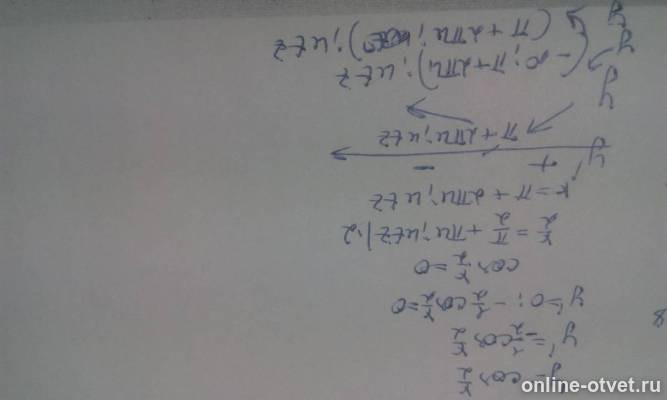 8
y = cos x/2
y' = -1/2 cos x/2
y' = 0; -1/2 cos x/2 = 0
cos x/2 = 0
x/2 = π/2 + πn; n∈Z |·2
x = π + 2πn; n∈Z
y' + -
π + 2πn; n∈Z
y
y (-∞; π + 2πn); n∈Z
y (π + 2πn; ); n∈Z
online-otvet.ru